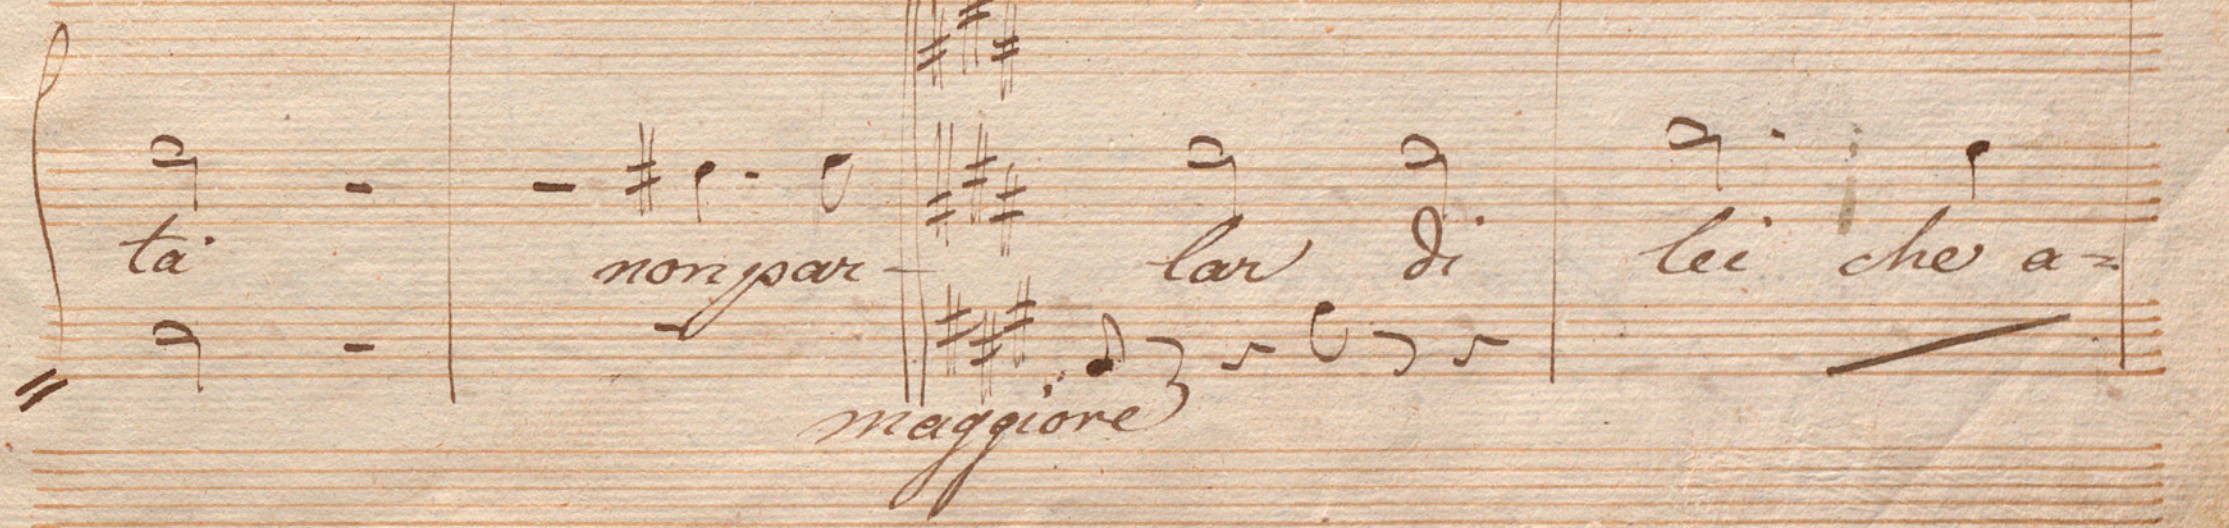 tà non par- lar di lei che a=
maggiore